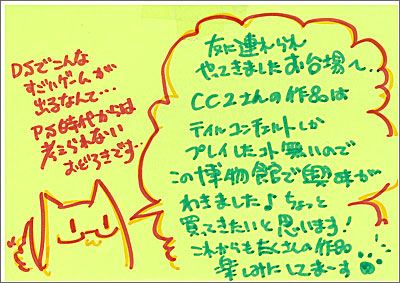 DSでこんな
すごいゲームが
出るなんて…
PS時代からは
考えられない
おどろきです…
友に連れられ
やってきましたお台場へ…
CC2さんの作品は
テイルコンチェルトしか
プレイしたコト無いので
この博物館で興味が
わきました♪ちょっと
買ってきたいと思います!
これからもたくさんの作品
楽しみにしてまーす